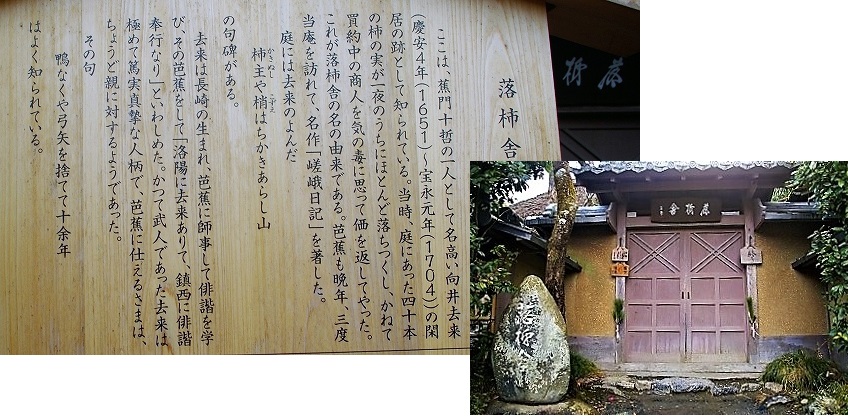 落柿舎
ここは、蕉門十哲の一人として名高い向井去来
(慶安4年(1651)～宝永元年(1704))の閑
居の跡として知られている。当時、庭にあった四十本
の柿の実が一夜のうちにほとんど落ちつくし、かねて
買約中の商人を気の毒に思って価を返してやった。
これが落柿舎の名の由来である。芭蕉も晩年、三度
当庵を訪れて、名作「嵯峨日記」を著した。
庭には去来のよんだ
柿主や梢はちかきあらし山
かきぬし
こずえ
の句碑がある。
去来は長崎の生まれ、芭蕉に師事して俳諧を学
び、その芭蕉をして「洛陽に去来ありて、鎮西に俳諧
奉行なり」といわしめた。かつて武人であった去来は
極めて篤実真摯な人柄で、芭蕉に仕えるさまは、
ちょうど親に対するようであった。
その句
鴨なくや弓矢を捨てて十余年
はよく知られている。
落柿舎